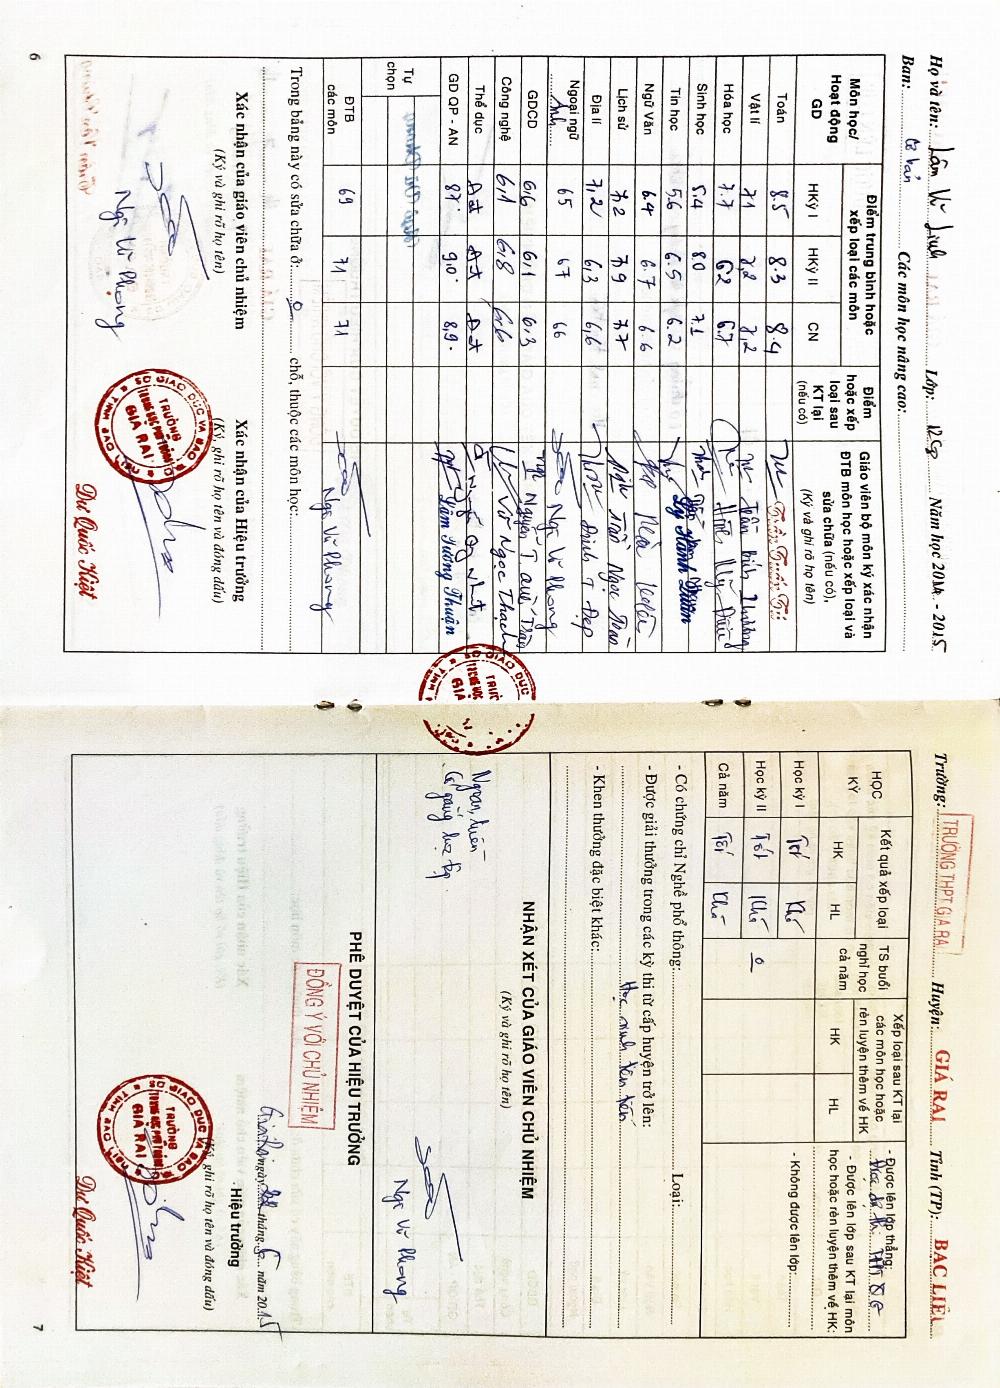 Họ và tên: Lâm Vũ Linh Lớp: 12C8 Năm học 2014 - 2015
Ban: Các môn học nâng cao:
Môn học/ Hoạt động GD | Điểm trung bình hoặc xếp loại các môn | Điểm hoặc xếp loại sau KT lại (nếu có) | Giáo viên bộ môn ký xác nhận ĐTB môn học hoặc xếp loại và sửa chữa (nếu có), (Ký và ghi rõ họ tên)
HKỳ I | HKỳ II | CN
Toán 8.5 8.3 8.4
Vật lí 7.1 7,2 7,2
Hóa học 7.7 6.2 6.7
Sinh học 5.4 8.0 7.1
Tin học 5.6 6.5 6.2 Lý Hành
Ngữ Văn 6.4 6.7 6.6
Lịch sử 7.2 7.9 7.7 Trần Ngọc
Địa lí 7,2 6,3 6,6 Đinh T. Đẹp
Ngoại ngữ Anh 65 67 66 Ngô Vũ Phong
GDCD 6,6 6,1 6,3 Nguyễn T.
Công nghệ 6,1 6,8 6,6 Võ Ngọc Thạch
Thể dục Đạt Đạt Đạt
GD QP - AN 8,7 9,0 8,9 Lâm Tường Thuận
Tự chọn
ĐTB các môn 69 71 71 Ngô Vũ Phong
Trong bảng này có sửa chữa ở: 0 chỗ, thuộc các môn học:
Xác nhận của giáo viên chủ nhiệm
(Ký và ghi rõ họ tên)
Ngô Vũ Phong
Xác nhận của Hiệu trưởng
(Ký, ghi rõ họ tên và đóng dấu)
SỞ GIÁO DỤC VÀ ĐÀO
TRƯỜNG
TRUNG HỌC PHỔ THÔNG
GIÁ RAI
Dư Quốc Kiệt
6
SỞ GIÁO DỤC
TRƯỜNG
TRUNG HỌC
GIÁ
Trường: TRƯỜNG THPT GIÁ RAI Huyện: GIÁ RAI Tỉnh (TP): BẠC LIÊU
HỌC KỲ | Kết quả xếp loại | TS buổi nghỉ học cả năm | Xếp loại sau KT lại các môn học hoặc rèn luyện thêm về HK
HK | HL | HK | HL
Học kỳ I Tốt Khá
Học kỳ II Tốt Khá 0
Cả năm Tốt Khá
- Được lên lớp thẳng:
- Được lên lớp sau KT lại môn học hoặc rèn luyện thêm về HK:
- Không được lên lớp:
- Có chứng chỉ Nghề phổ thông: Loại:
- Được giải thưởng trong các kỳ thi từ cấp huyện trở lên:
Học sinh tiên tiến
- Khen thưởng đặc biệt khác:
NHẬN XÉT CỦA GIÁO VIÊN CHỦ NHIỆM
(Ký và ghi rõ họ tên)
Ngoan, hiền
Cố gắng học tập
Ngô Vũ Phong
PHÊ DUYỆT CỦA HIỆU TRƯỞNG
ĐỒNG Ý VỚI CHỦ NHIỆM
Giá Rai, ngày tháng 5 năm 2015
Hiệu trưởng
(Ký, ghi rõ họ tên và đóng dấu)
SỞ GIÁO DỤC VÀ ĐÀO
TRƯỜNG
TRUNG HỌC PHỔ THÔNG
GIÁ RAI
Dư Quốc Kiệt
7